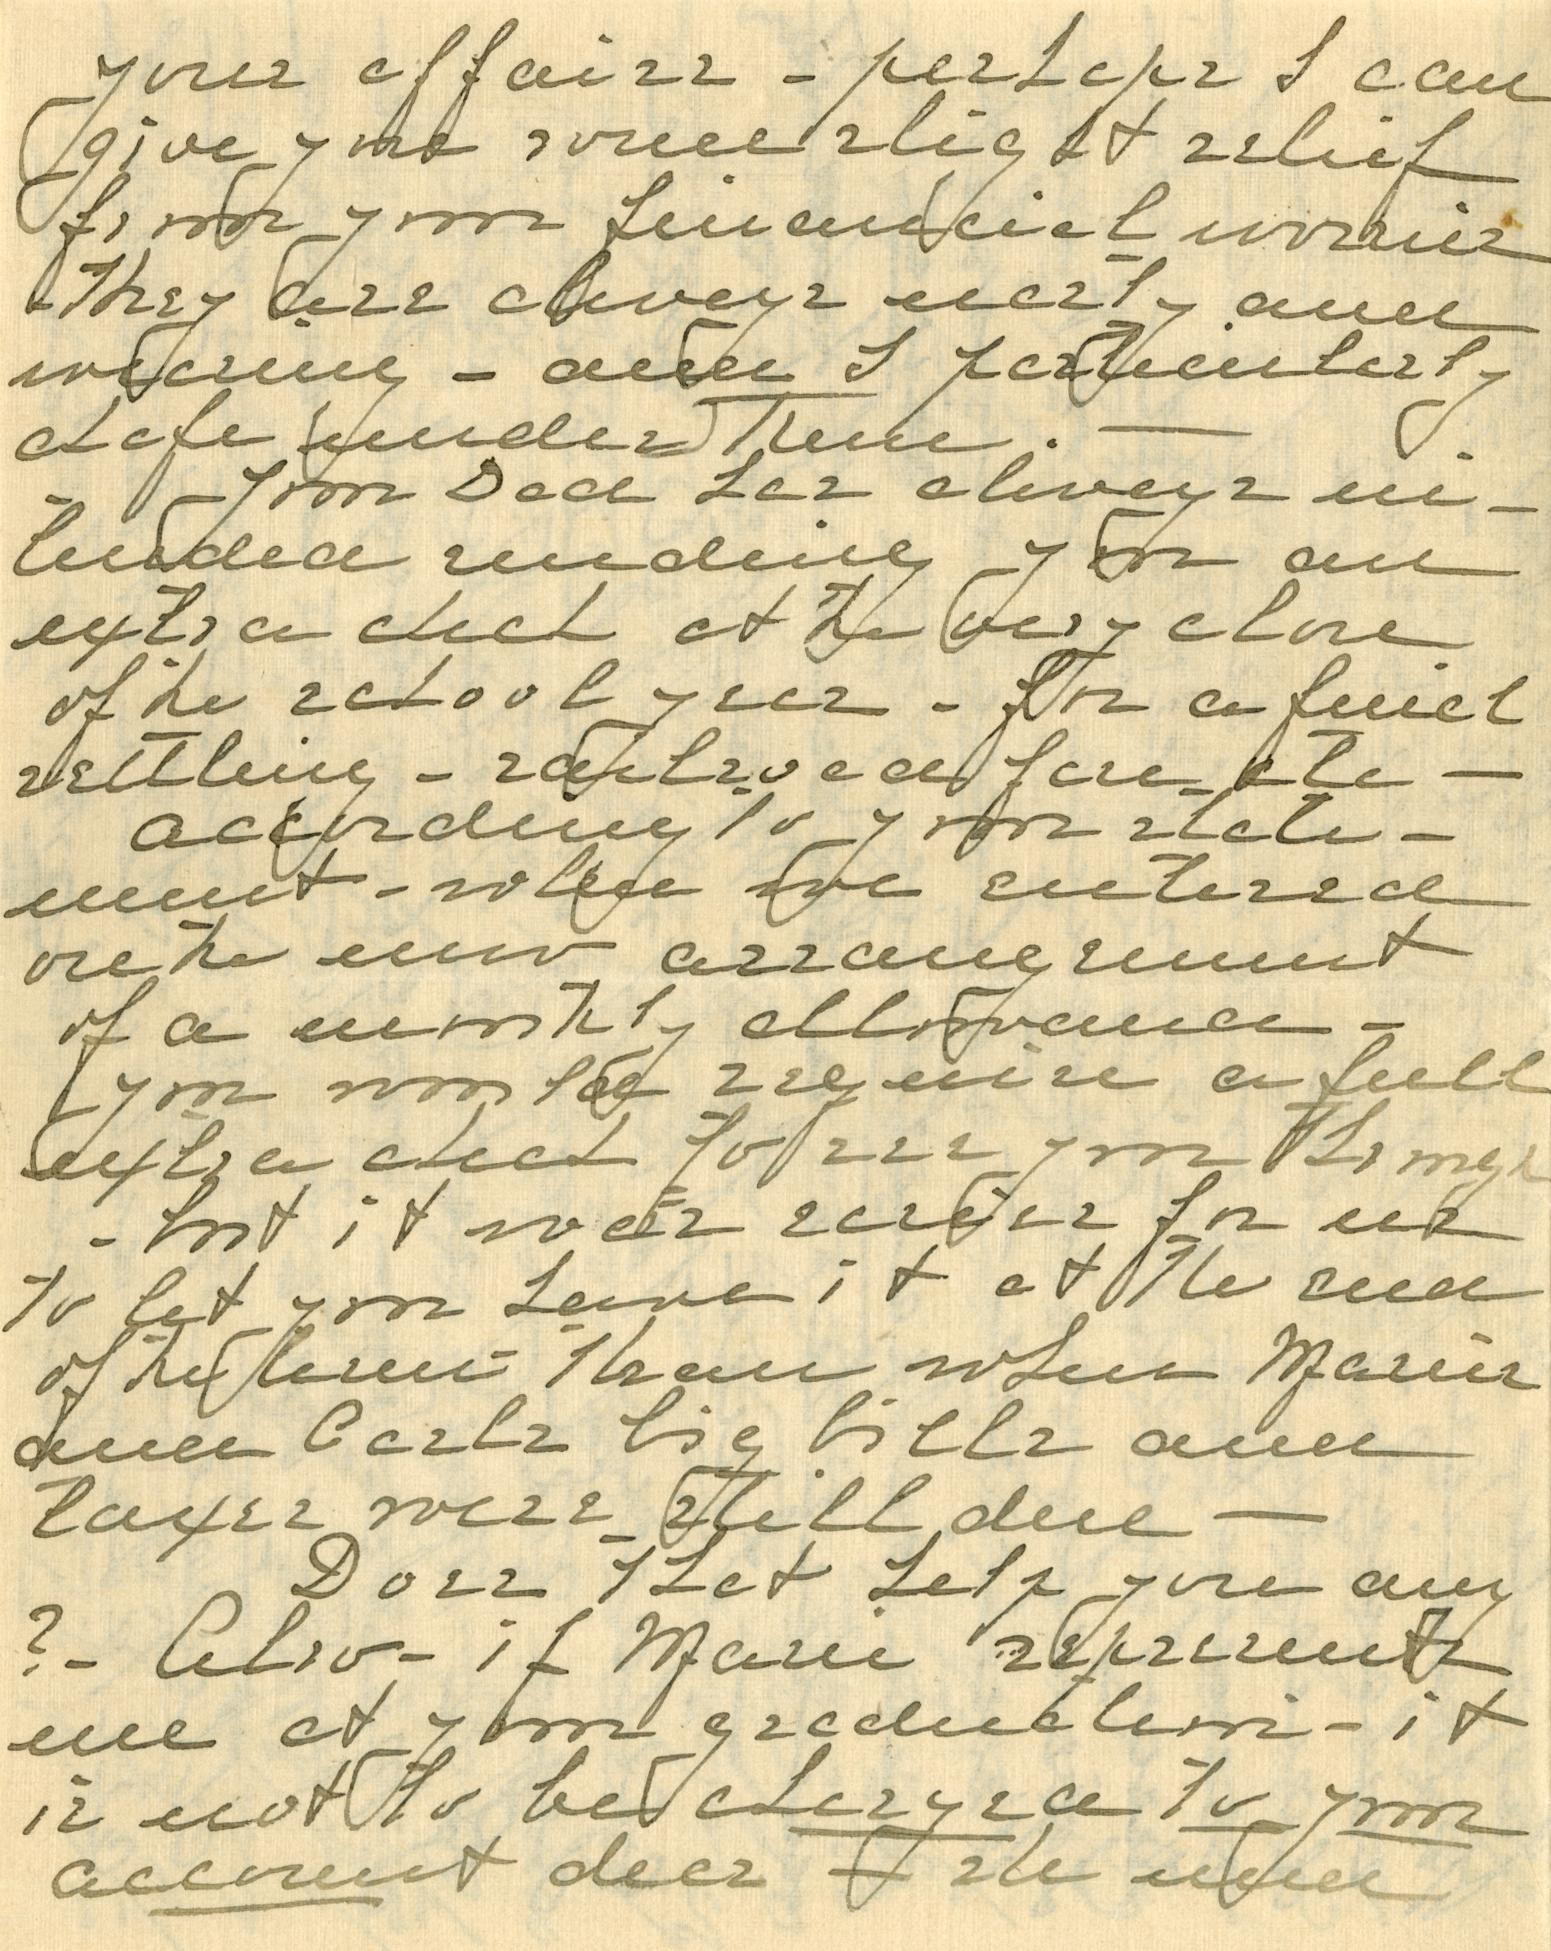 your affairs - perhaps I can
give you some slight relief
from your financial worries
- They are always nasty and
wearing - and I particularly
chafe under them. —
Your Dad has always in-
tended sending you an
extra check at the very close
of the school year - for a final
settling - railroad fare, etc —
according to your state-
ment - when we entered
on the new arrangement
of a monthly allowance -
you would require a full
extra check to see you through
- but it was easier for us
to let you have it at the end
of the term than when Marie's
and Carl's big bills and
taxes were still due —
Does that help you any
? - Also - if Marie represents
me at your graduation - it
is not to be charged to your
account dear - She